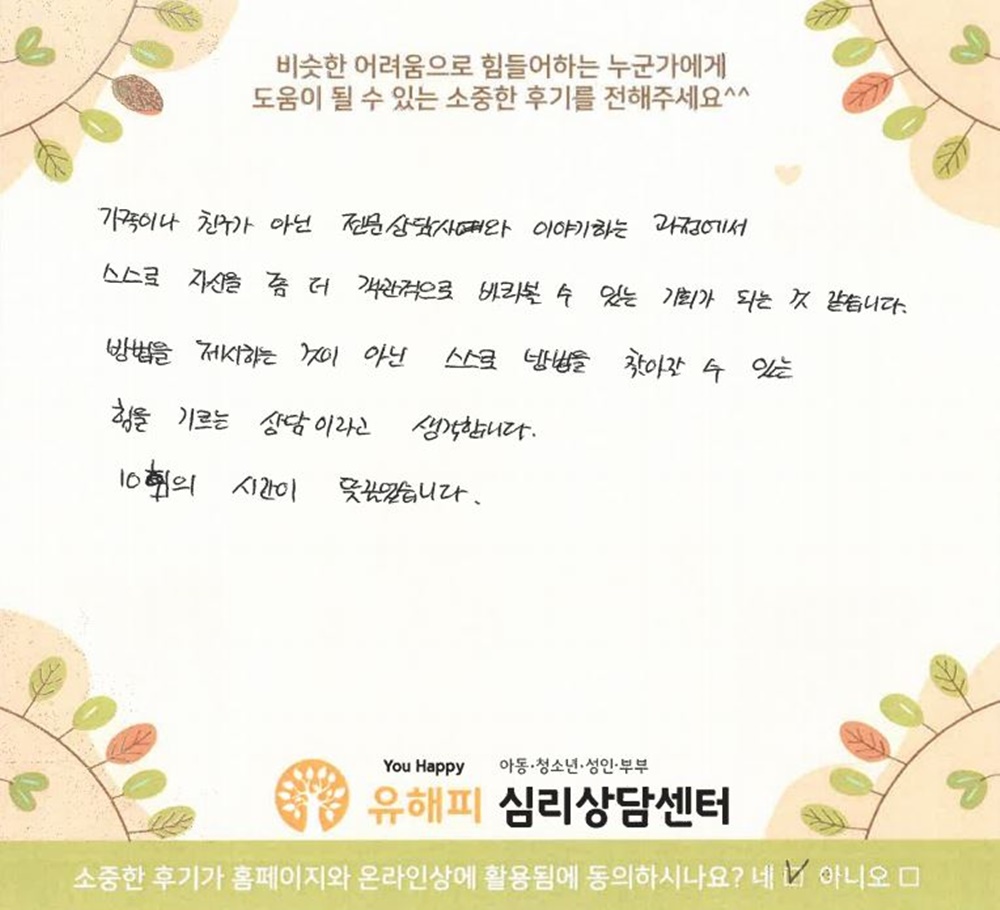 비슷한 어려움으로 힘들어하는 누군가에게
도움이 될 수 있는 소중한 후기를 전해주세요^^
가족이나 친구가 아닌 전문상담사와 이야기하는 과정에서
스스로 자신을 좀 더 객관적으로 바라볼 수 있는 기회가 되는 것 같습니다.
방법을 제시하는 것이 아닌 스스로 방법을 찾아갈 수 있는
힘을 기르는 상담이라고 생각합니다.
10회의 시간이 뜻깊었습니다.
You Happy 아동·청소년·성인·부부
유해피 심리상담센터
소중한 후기가 홈페이지와 온라인상에 활용됨에 동의하시나요? 네 ☑ 아니오 □